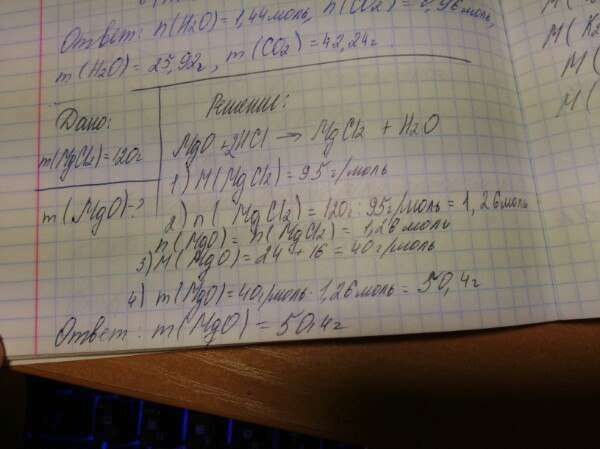 Ответ: n(H2O) = 1,44моль, n(CO2) = 0,96 моль,
m(H2O) = 25,92г, m(CO2) = 42,24г
Дано:
m(MgCl2)=120г
m(MgO)-?
Решение:
MgO+2HCl → MgCl2 + H2O
1) M(MgCl2) = 95г/моль
2) n(MgCl2) = 120г : 95г/моль = 1,26моль
n(MgO) = n(MgCl2) = 1,26 моль
3) M(MgO) = 24 + 16 = 40г/моль
4) m(MgO)=40г/моль · 1,26моль = 50,4г
Ответ: m(MgO) = 50,4г
M(
M(K2
M(
M(